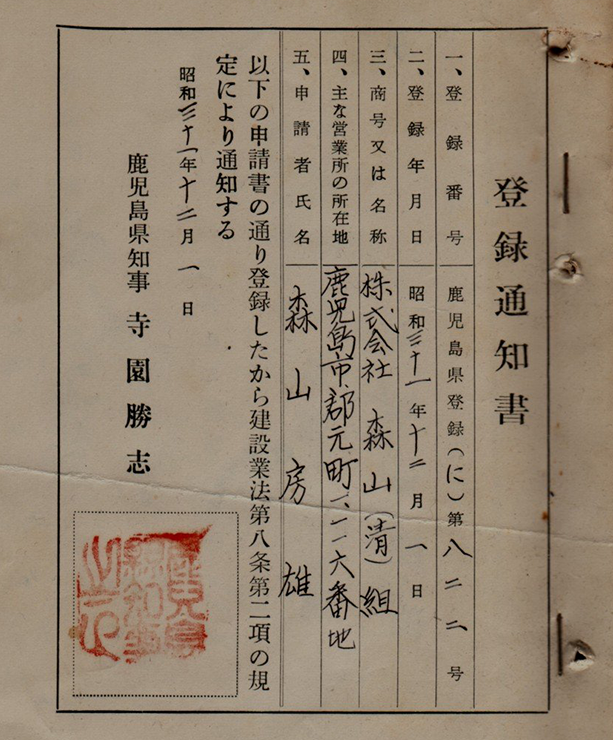 登録通知書
一、登録番号 鹿児島県登録(に)第八二二号
二、登録年月日 昭和三十一年十二月一日
三、商号又は名称 株式会社 森山(清)組
四、主な営業所の所在地 鹿児島市郡元町一一一六番地
五、申請者氏名 森山房雄
以下の申請書の通り登録したから建設業法第八条第二項の規
定により通知する
昭和三十一年十二月一日
鹿児島県知事 寺園勝志